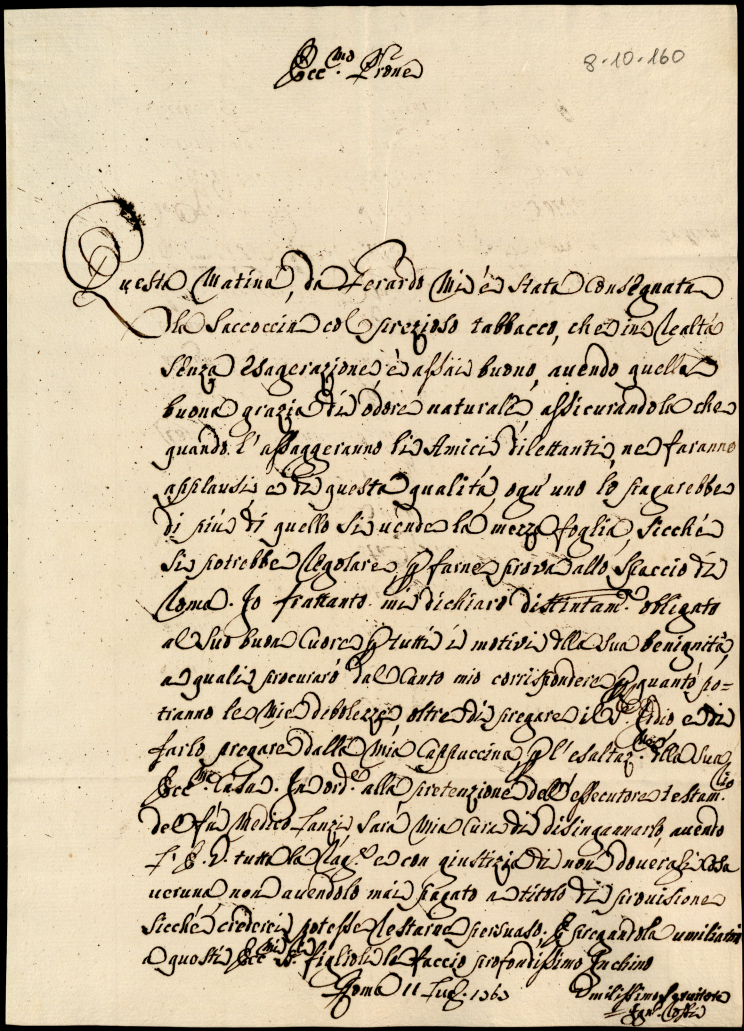 Ecc.mo Prone
8.10.160
Questa Matina, da Gerardo Mi è stata Consegnata
la Saccoccia col prezioso tabbacco, che in Realtà
senza Esagerazione è assai buono, avendo quella
buona grazia di odore naturale, assicurandola che
quando l'assaggeranno li Amici dilettanti, ne faranno
applausi e di questa qualità, ogn'uno lo pagarebbe
di più di quello si vende la mezza foglia, sicché
si potrebbe Regolare p farne prova allo Spaccio di
Roma. Io frattanto mi dichiaro distintam.e obligato
al Suo buon Cuore p tutti i motivi dlla Sua benignità,
a quali procuraró dal Canto mio corrispondere p quanto po=
tranno le Mie debolezze, oltre di pregare il S. Idio e di
farlo pregare dalla Mia Cappuccina p l'esaltaz.ne dlla Sua
Ecc.ma Casa. In ord.e alla pretenzione dell'essecutore testam.rio
del fú Medico Lanzi Sarà Mia Cura di disingannarlo, avendo
V. E. tutta la Rag.e e con giustizia di non doverglisi Cosa
veruna non avendolo mai pagato a titolo di provisione
sicché crederei potesse Restarne persuaso. E pregandola umiliarmi
a questi Ecc.mi SS.ri figlioli le faccio profondissimo Inchino
Roma 11 Lug. 1763
Umilissimo Servitore
Ign.